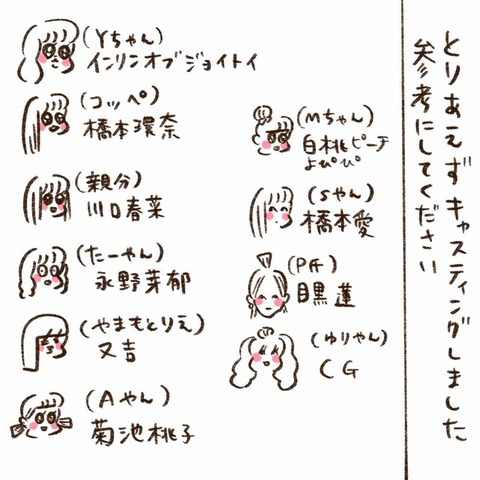 とりあえずキャスティングしました
参考にしてください
(Yちゃん)
インリンオブジョイトイ
(コッペ)
橋本環奈
(親分)
川口春菜
(たーやん)
永野芽郁
(やまもとりえ)
又吉
(Aやん)
菊池桃子
(Mちゃん)
白桃ピーチ
よぴぴ
(Sやん)
橋本愛
(P斤)
目黒蓮
(ゆりやん)
CG